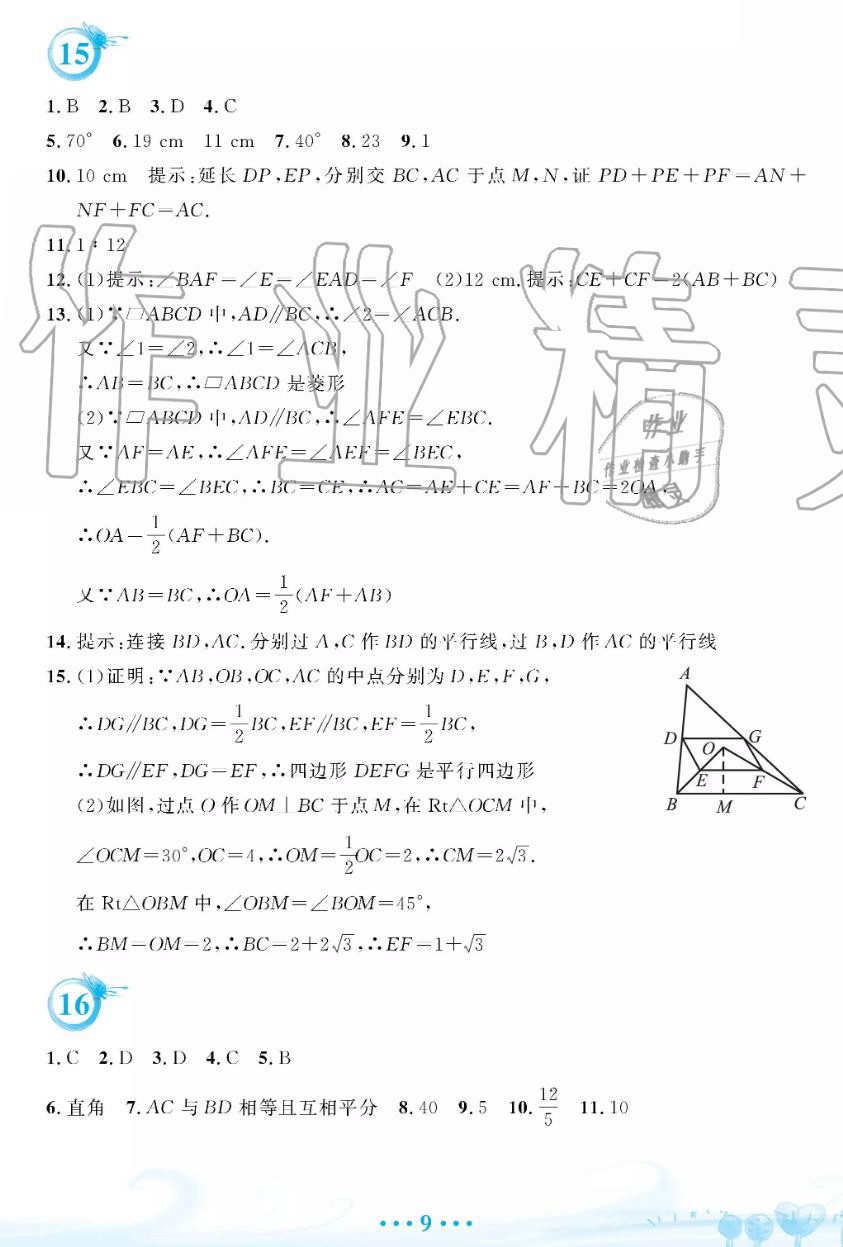 15
1. B 2. B 3. D 4. C
5. 70° 6. 19 cm 11 cm 7. 40° 8. 23 9. 1
10. 10 cm 提示:延长 DP,EP,分别交 BC,AC 于点 M,N,证 PD+PE+PF=AN+
NF+FC=AC.
11. 1∶12
12. (1)提示:∠BAF=∠E=∠EAD=∠F (2)12 cm.提示:CE+CF=2(AB+BC)
13. (1)∵▱ABCD 中,AD∥BC,∴∠2=∠ACB.
又∵∠1=∠2,∴∠1=∠ACB,
∴AB=BC,∴▱ABCD 是菱形
(2)∵▱ABCD 中,AD∥BC,∴∠AFE=∠EBC.
又∵AF=AE,∴∠AFE=∠AEF=∠BEC,
∴∠EBC=∠BEC,∴BC=CE,∴AC=AE+CE=AF+BC=2OA,
∴OA=1/2(AF+BC).
又∵AB=BC,∴OA=1/2(AF+AB)
14. 提示:连接 BD,AC.分别过 A,C 作 BD 的平行线,过 B,D 作 AC 的平行线
15. (1)证明:∵AB,OB,OC,AC 的中点分别为 D,E,F,G,
∴DG∥BC,DG=1/2BC,EF∥BC,EF=1/2BC,
∴DG∥EF,DG=EF,∴四边形 DEFG 是平行四边形
(2)如图,过点 O 作 OM⊥BC 于点 M,在 Rt△OCM 中,
∠OCM=30°,OC=4,∴OM=1/2OC=2,∴CM=2√3.
在 Rt△OBM 中,∠OBM=∠BOM=45°,
∴BM=OM=2,∴BC=2+2√3,∴EF=1+√3
A
D
O
G
E
F
B
M
C
16
1. C 2. D 3. D 4. C 5. B
6. 直角 7. AC 与 BD 相等且互相平分 8. 40 9. 5 10. 12/5 11. 10
···9···
作业精灵
作业
作业检查小助手
精灵